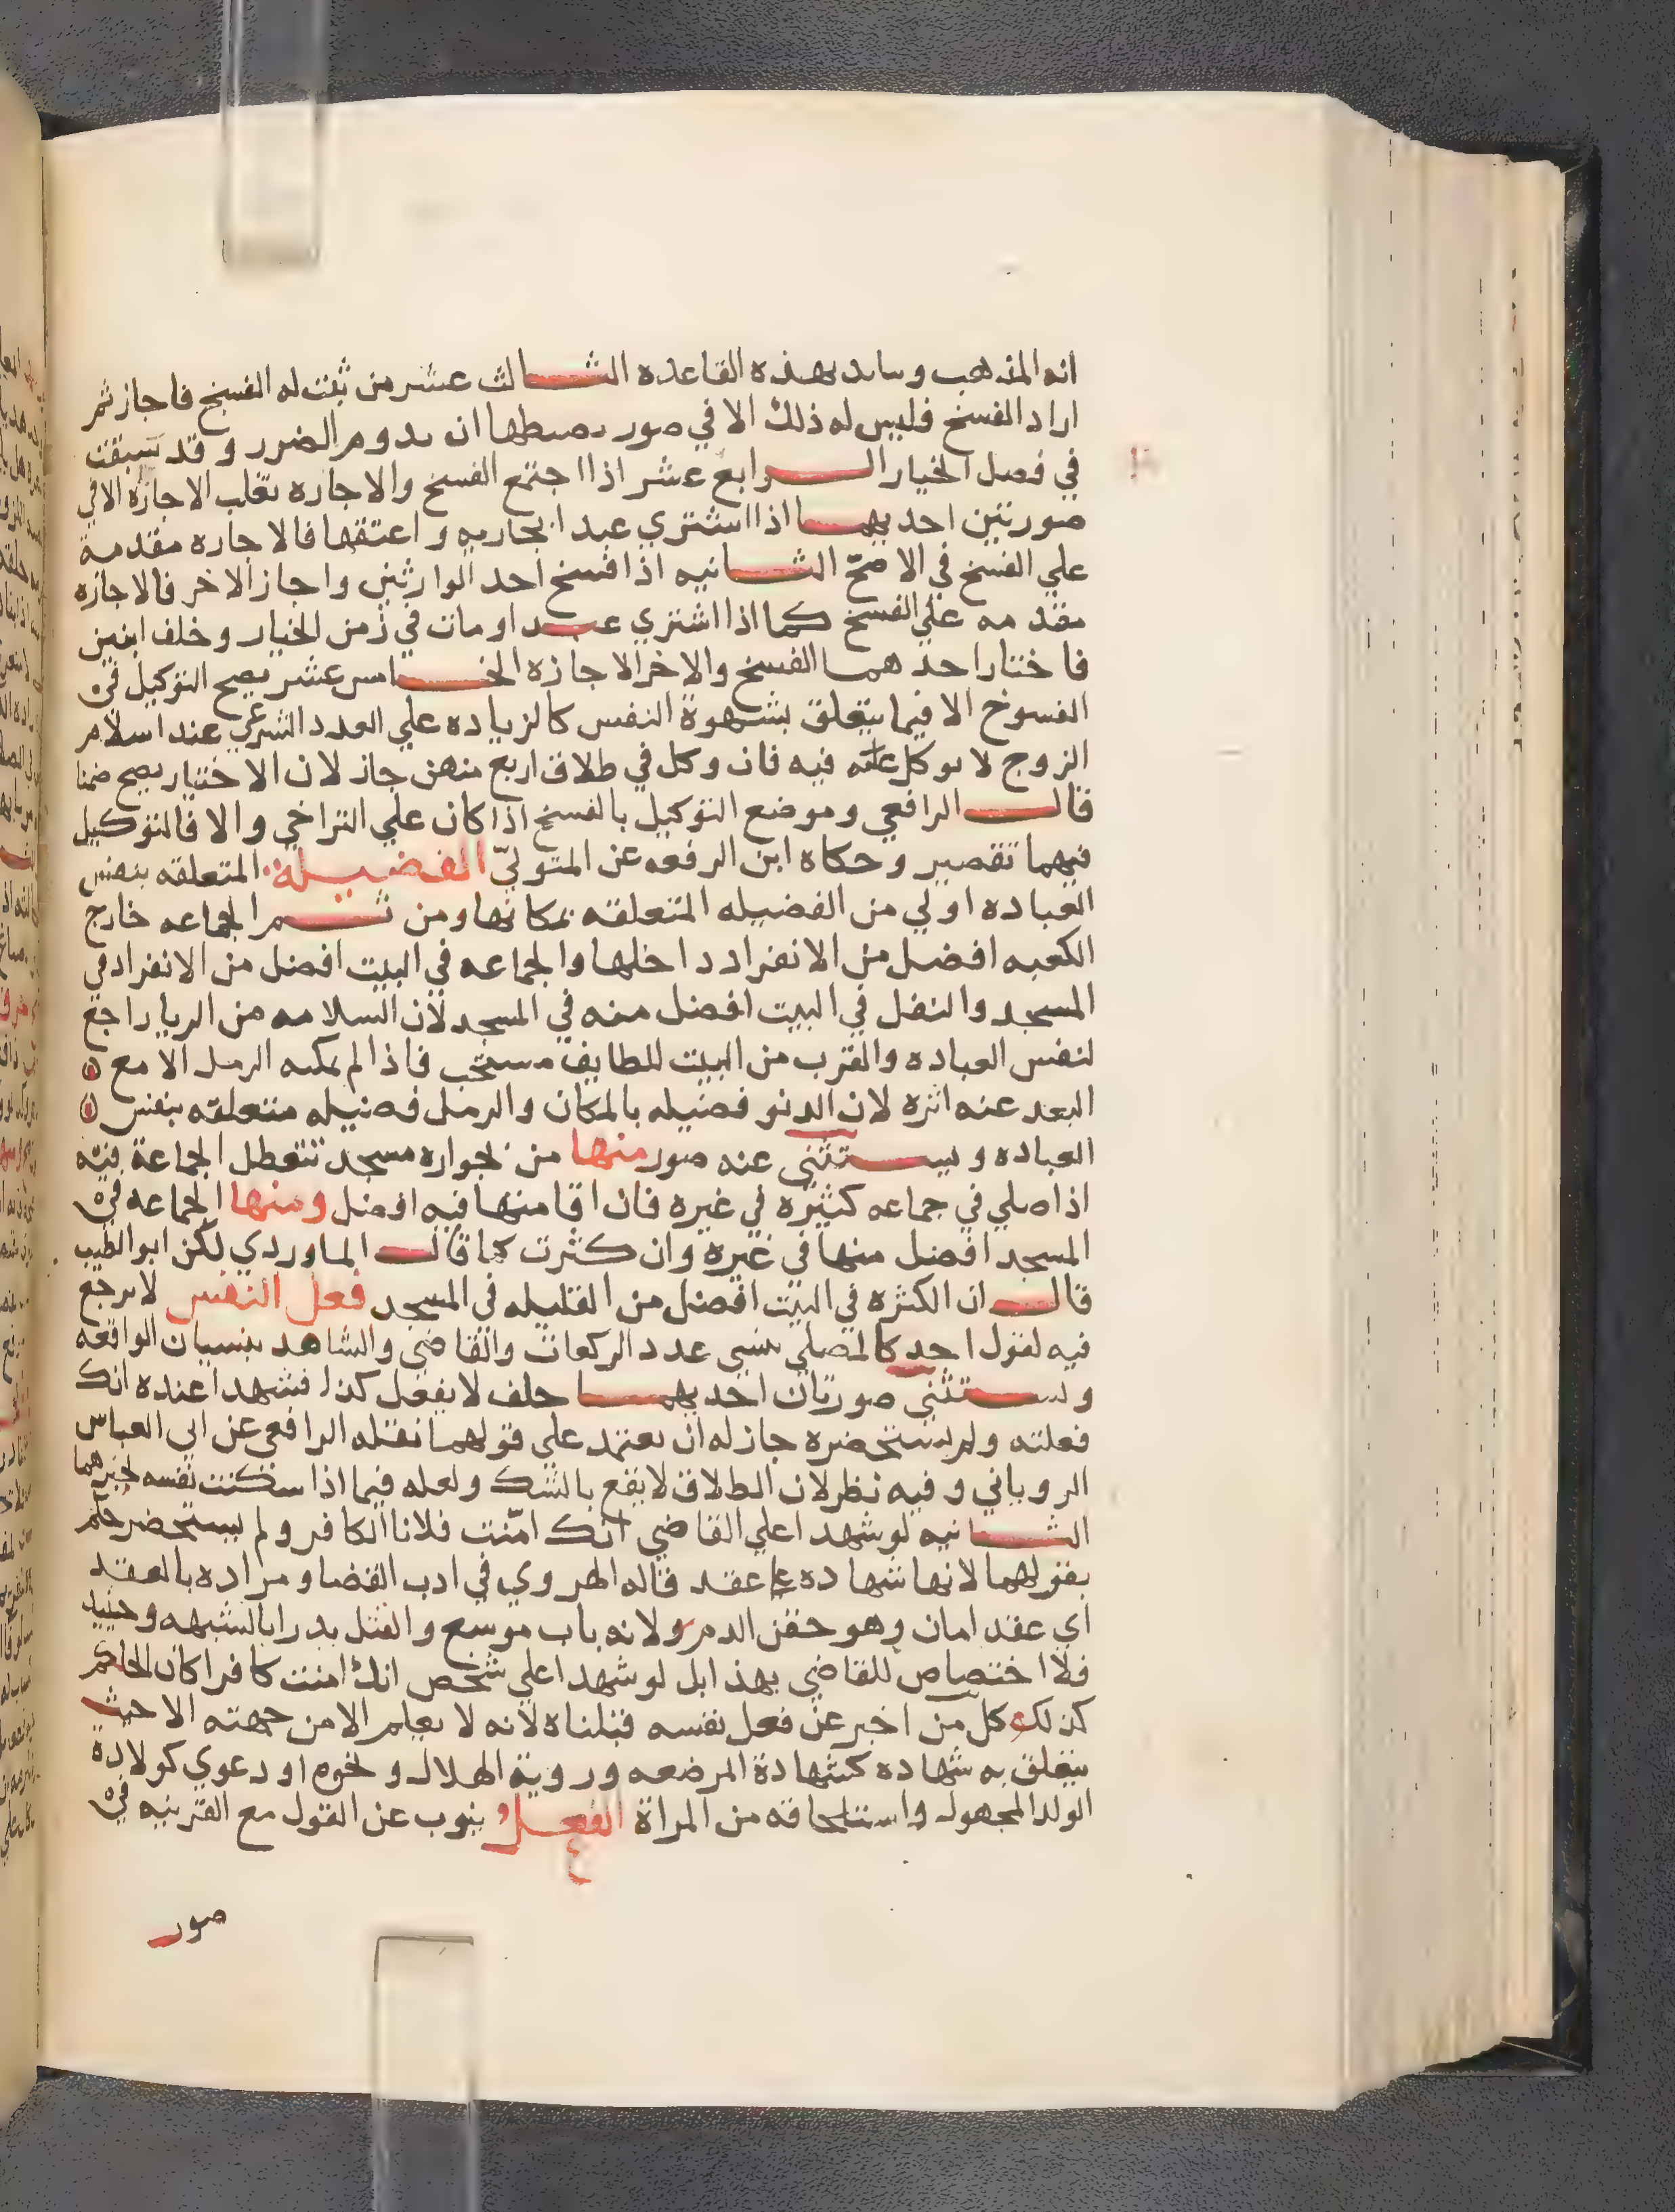 انه المذهب وتايد بهذه القاعده الثالث عشر من ثبت له الفسخ فاجاز ثم
اراد الفسخ فليس له ذلك الا في صور بضبطها ان يدوم الضرر وقد سبقت
في فصل الخيار الرابع عشر اذا اجتمع الفسخ والاجازه تغلب الاجازه الا في
صورتين احديهما اذا اشتري عبدا بجاريه و اعتقها فالاجازه مقدمة
علي الفسخ في الاصح الثانيه اذا فسخ احد الوارثين واجاز الاخر فالاجازه
مقدمه علي الفسخ كما اذا اشتري عبدا ومات في زمن الخيار وخلف ابنين
فاختار احدهما الفسخ والاخر الاجازه الخامس عشر يصح التوكيل في
الفسوخ الا فيما يتعلق بشهوة النفس كالزياده علي العدد الشرعي عند اسلام
الزوج لا يوكل عنه فيه فان وكل في طلاق اربع منهن جاز لان الاختيار يصح ضمنا
قال الرافعي وموضع التوكيل بالفسخ اذا كان علي التراخي والا فالتوكيل
فيهما تقصير وحكاه ابن الرفعه عن المتولي الفضيلة المتعلقه بنفس
العباده اولي من الفضيله المتعلقه بمكانها ومن ثم الجماعه خارج
الكعبه افضل من الانفراد داخلها والجماعه في البيت افضل من الانفراد في
المسجد والنفل في البيت افضل منه في المسجد لان السلامه من الريا راجع
لنفس العباده والقرب من البيت للطايف مستحب فاذا لم يمكنه الرمل الا مع
البعد عنه اثره لان الدنو فضيله بالمكان والرمل فضيله متعلقه بنفس
العباده ويستثني عنه صور منها من بجواره مسجد تتعطل الجماعة فيه
اذا صلي في جماعه كثيره في غيره فان اقامتها فيه افضل ومنها الجماعه في
المسجد افضل منها في غيره وان كثرت كما قال الماوردي لكن ابو الطيب
قال ان الكثره في البيت افضل من القليله في المسجد فعل النفس لا يرجع
فيه لقول احد كالمصلي ينسي عدد الركعات والقاضي والشاهد بنسيان الواقعه
ويستثني صورتان احديهما حلف لا يفعل كذا فشهدا عنده انك
فعلته ولم يستحضره جاز له ان يعتمد علي قولهما نقله الرافعي عن ابي العباس
الروياني وفيه نظر لان الطلاق لا يقع بالشك ولعله فيما اذا سكنت نفسه لخبرهما
الثانيه لو شهدا علي القاضي انك امنت فلانا الكافر ولم يستحضر حكم
بقولهما لانها شهاده علي عقد قاله الهروي في ادب القضا ومراده بالعقد
اي عقد امان وهو حقن الدم ولانه باب موسع والقتل يدرا بالشبهه وحينيذ
فلا اختصاص للقاضي بهذا بل لو شهدا علي شخص انك امنت كافرا كان الحكم
كذلك كل من اخبر عن فعل نفسه قبلناه لانه لا يعلم الا من جهته الا حيث
يتعلق به شهاده كشهادة المرضعه وروية الهلال ونحوه او دعوي كولادة
الولد المجهول واستلحاقه من المراة الفعل ينوب عن القول مع القرينه في
صور